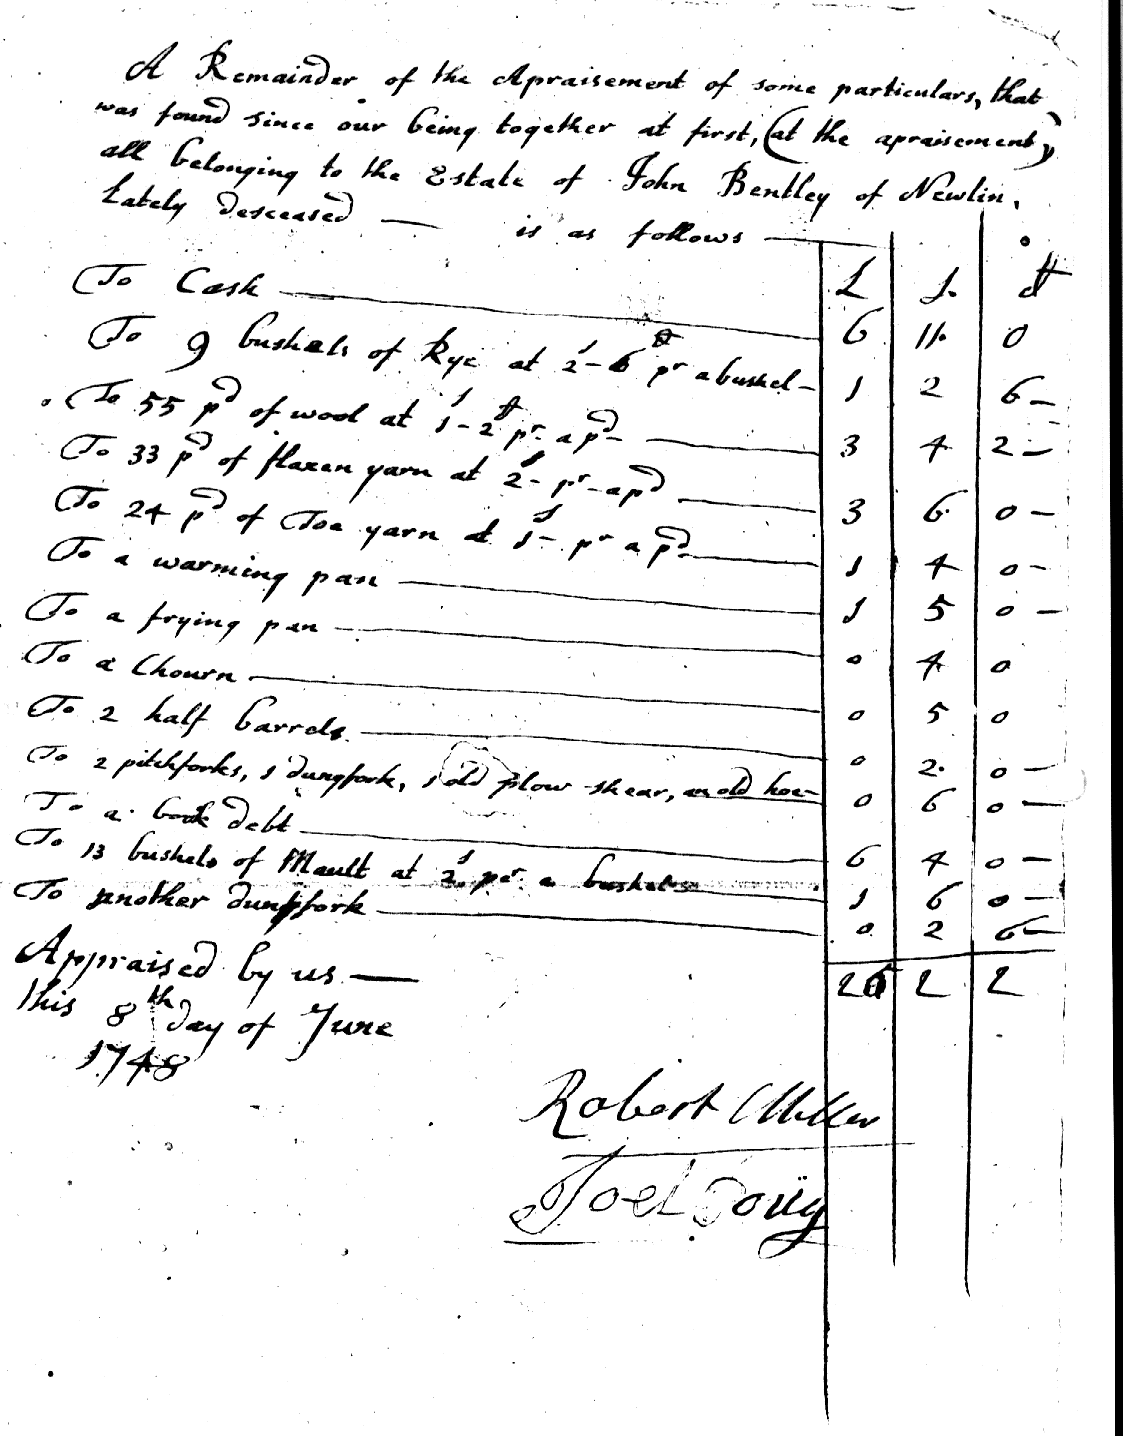 A Remainder of the Apraisement of some particulars, that
was found since our being together at first, (at the apraisement)
all belonging to the Estate of John Bentley of Newlin,
Lately desceased — is as follows —
£ s. d
To Cash — 6 11. 0
To 9 bushels of Rye at 2s-6d pr a bushel — 1 2 6 —
To 55 pd of wool at 1s-2d pr. a pd — 3 4 2 —
To 33 pd of flaxen yarn at 2s- pr - a pd — 3 6 0 —
To 24 pd of Toe yarn at 1s- pr a pd — 1 4 0 —
To a warming pan — 1 5 0 —
To a frying pan — 0 4 0
To a Chourn — 0 5 0
To 2 half barrels — 0 2. 0 —
To 2 pitchforks, 1 dungfork, 1 old plow-shear, an old hoe — 0 6 0 —
To a book debt — 6 4 0 —
To 13 bushels of Mault at 2s per a bushel — 1 6 0 —
To another dungfork — 0 2 6 —
Appraised by us — 2 2
this 8th day of June
1748
Robert Miller
Joel